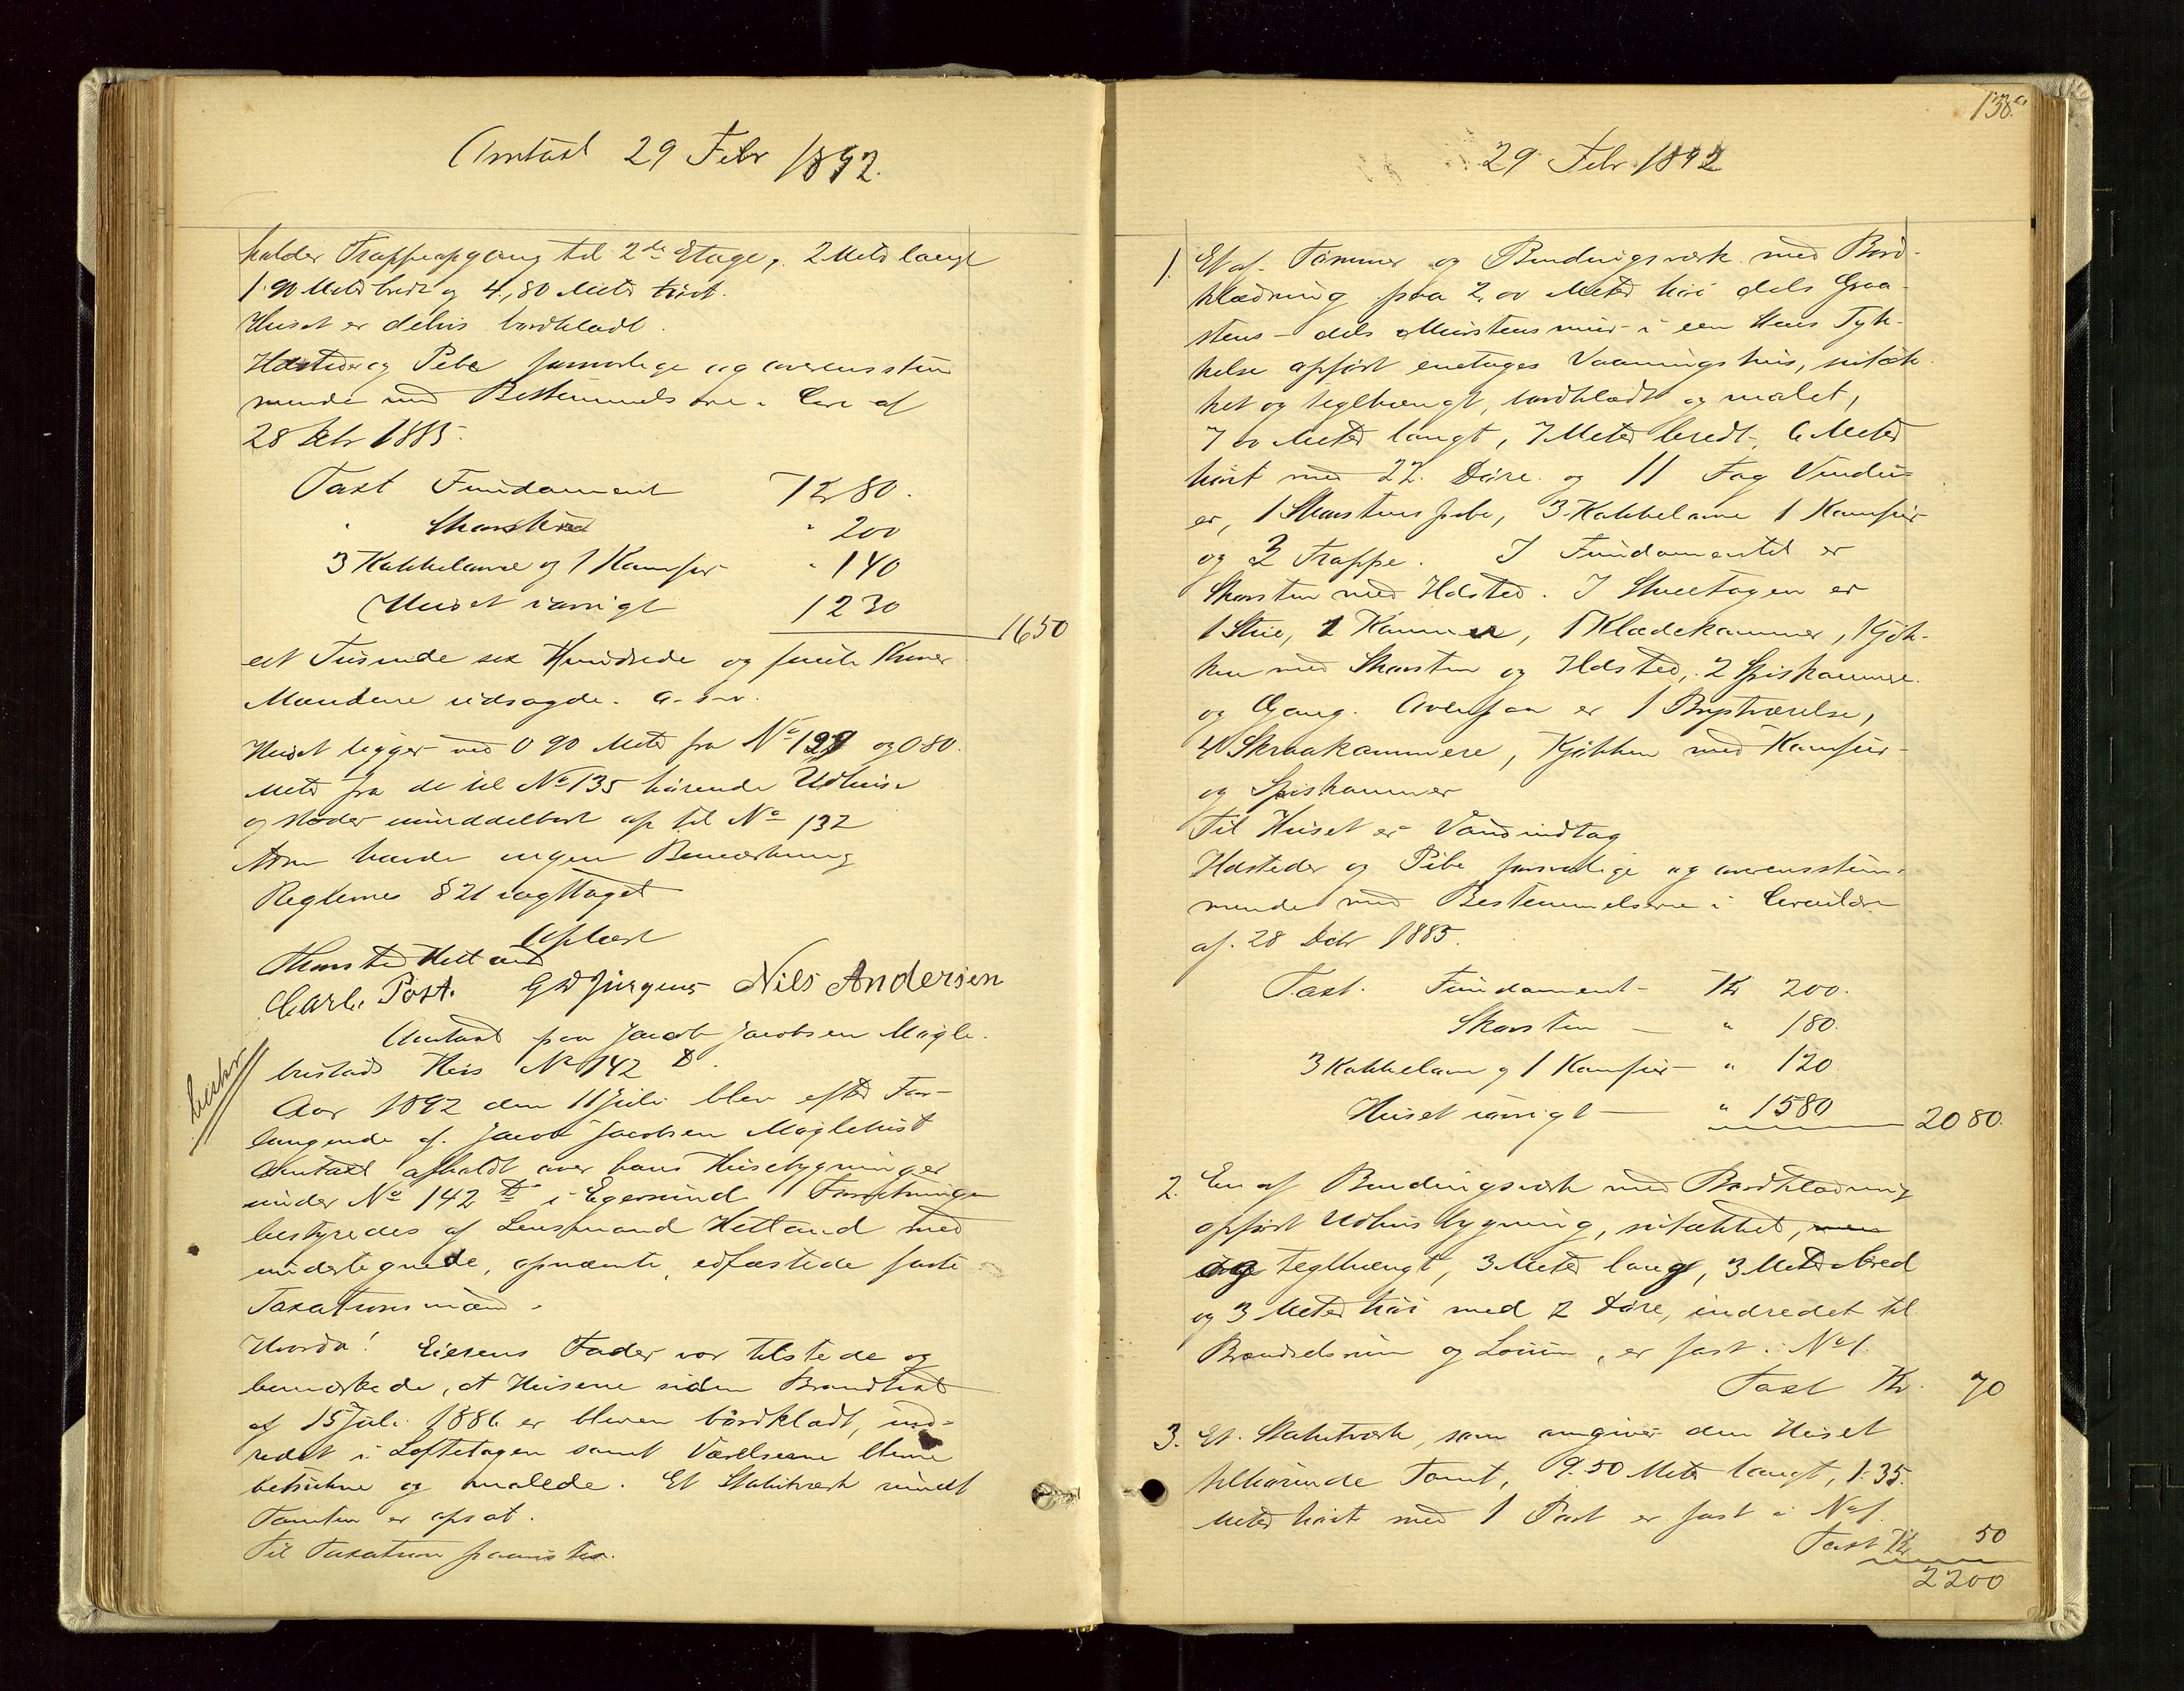 Omtaxt 29 Febr 1892.
holder Trappeopgang til 2de Etage, 2 Meter langt
1.90 Meter bredt og 4,80 Meter høit.
Huset er delvis bordklædt.
Ildsteder og Piber forsvarlige og overensstem
mende med Bestemmelserne i Circ af
28 Debr 1885.
Taxt Fundament Kr 80.
" Skorsten " 200
3 Kakkelovne og 1 Komfur " 140
Huset iøvrigt 1230
1650
eet Tusinde sex Hundrede og femti Kroner
Mændene udsagde. a. s. v.
Huset ligger ved 0 90 Meter fra No 129 og 0 80.
Meter fra de til No 135 hørende Udhuse
og støder umiddelbart op til No 132
havde ingen Bemærkning
Reglernes § 21 iagttaget
Oplæst
Thorsted Hetland
Carl. Post. G W Jürgens Nils Andersen
Omtaxt paa Jacob Jacobsen Mögle-
bustads Hus No 142 D.
beskr
Aar 1892 den 11 Juli blev efter For-
langende af Jacob Jacobsen Möglebust
Omtaxt afholdt over hans Husebygninger
under No 142 D i Egersund Forretningen
bestyredes af Lensmand Hetland med
undertegnede, opnævnte, edfæstede faste
Taxationsmænd.
Hvorda! Eierens Fader var tilstede og
bemærkede, at Husene siden Brandtaxt
af 15 Juli 1886 er bleven bordklædt, ind-
redet i Loftetagen samt Værelserne blevne
betrukne og malede. Et Stakitværk rundt
Tomten er opsat.
Til Taxation paavistes.
138a
29 Febr 1892
1. Et af Tømmer og Bindingsværk med Bord-
klædning paa 2,00 Meter høi dels Graa-
stens- dels Murstensmur i een Stens Tyk-
kelse opført enetages Vaaningshus, sutæk
ket og teglhængt, bordklædt og malet,
7 00 Meter langt, 7 Meter bredt, 6 Meter
høit med 22 Døre og 11 Fag Vindu-
er, 1 Skorstenspibe, 3 Kakkelovne 1 Komfur
og 3 Trappe. I Fundamentet er
Skorsten med Ildsted. I Stueetagen er
1 Stue, 1 Kammer, 1 Klædekammer, 1 Kjøk-
ken med Skorsten og Ildsted, 2 Spiskammere
og Gang. Ovenpaa er 1 Værelse,
4 Skraakammere, Kjøkken med Komfur
og Spiskammer
Til Huset er Vandindtag
Ildsteder og Pibe forsvarlige og overensstem-
mende med Bestemmelserne i Circulære
af 28 Debr 1885.
Taxt. Fundament - Kr 200.
Skorsten - " 180.
3 Kakkelovne og 1 Komfur - " 120.
Huset iøvrigt - " 1580
2080.
2. En af Bindingsværk med Bordklædning
opført Udhusbygning, sutækket,
og teglhængt, 3 Meter lang, 3 Meter bred
og 3 Meter høi med 2 Døre, indredet til
Brændselsrum og Lorum, er fast i No 1.
Taxt Kr. 70
3. Et Stakitværk, som omgiver den Huset
tilhørende Tomt, 9.50 Meter langt, 1.35.
Meter høit med 1 Port er fast i No 1.
Taxt Kr 50
2200